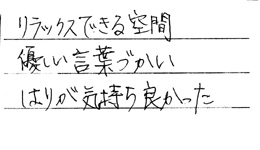 リラックスできる空間
優しい言葉づかい
はりが気持ち良かった